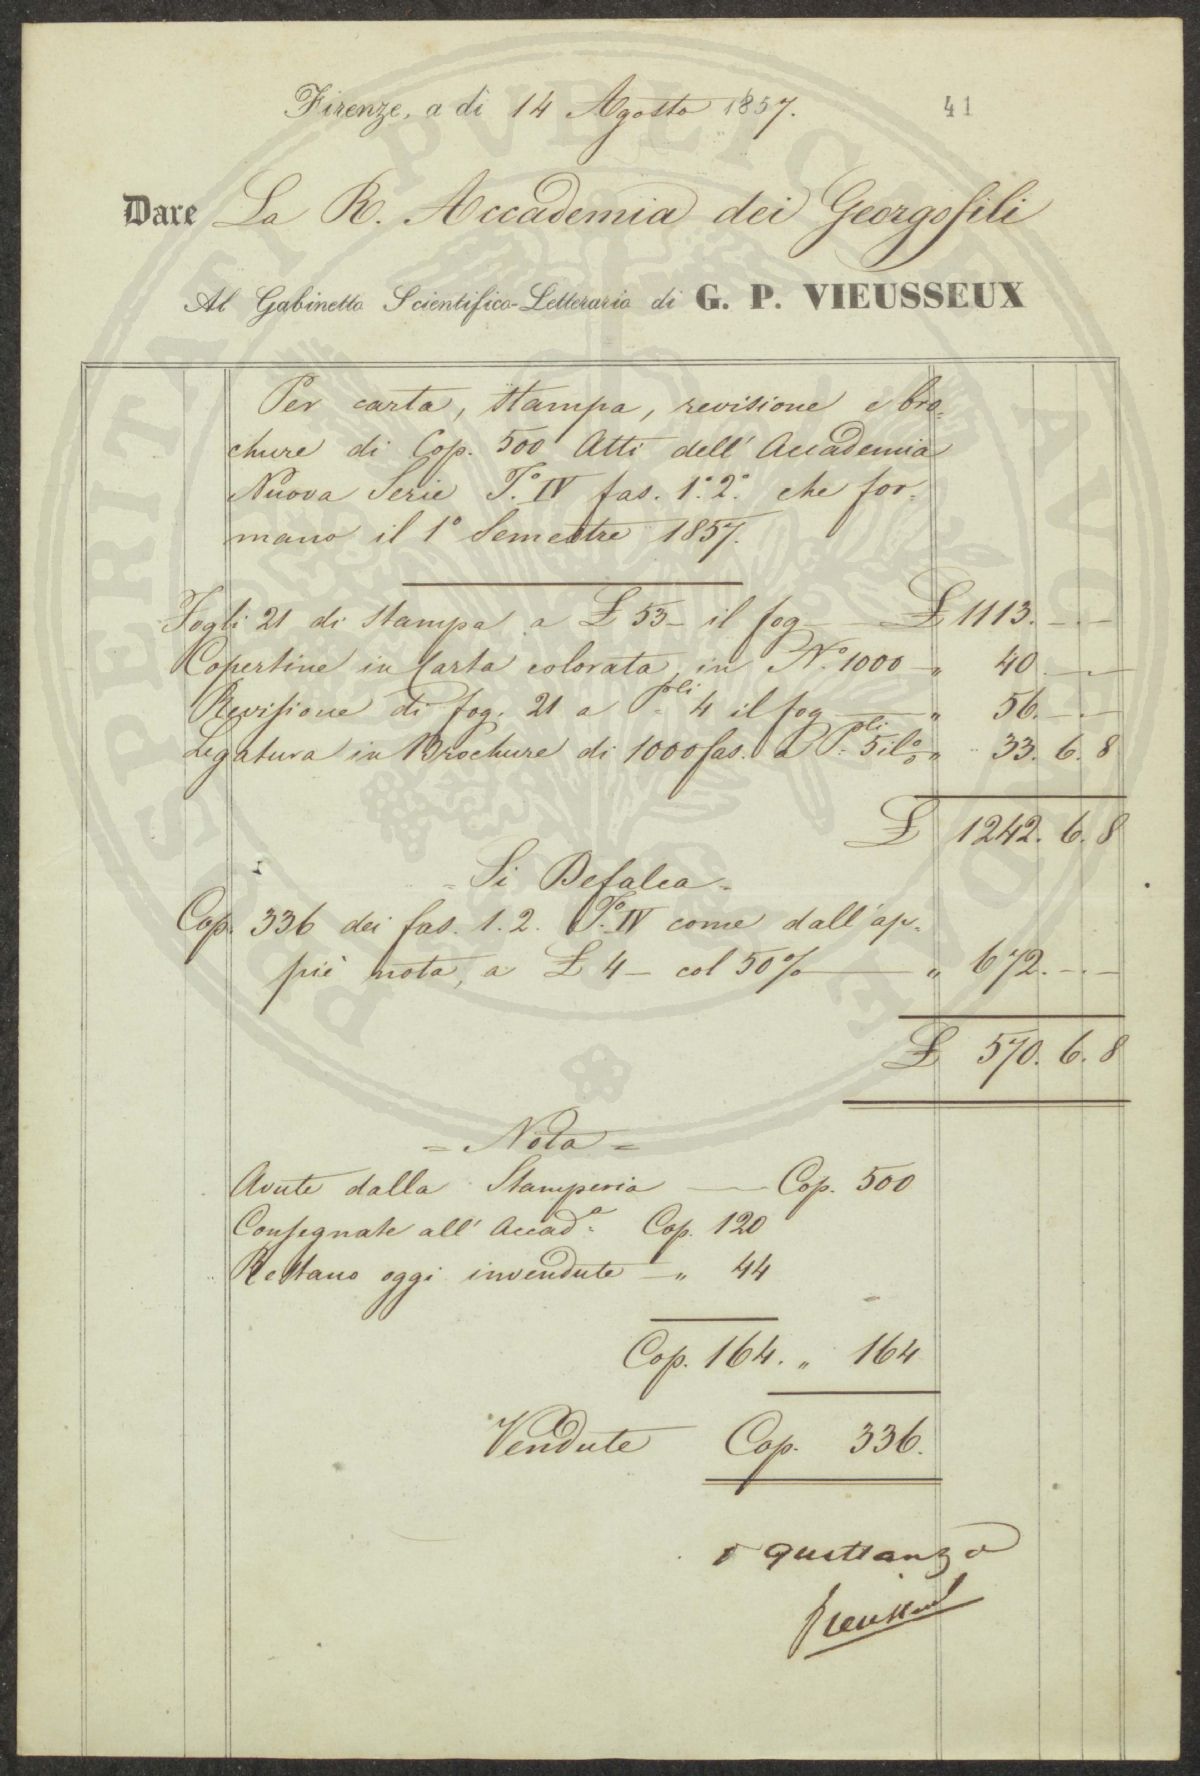 Firenze, a dì 14 Agosto 1857.
41
Dare La R. Accademia dei Georgofili
Al Gabinetto Scientifico-Letterario di G. P. VIEUSSEUX
Per carta, stampa, revisione e bro-
chure di Cop. 500 Atti dell' Accademia
Nuova Serie T.° IV fas. 1.° 2.° che for-
mano il 1° Semestre 1857.
Fogli 21 di stampa a £ 53 - il fog. £ 1113. - . -
Copertine in Carta colorata, in N.° 1000 - „ 40. - . -
Revisione di fog. 21 a P.oli 4 il fog „ 56. - . -
Legatura in Brochure di 1000 fas. a P.oli 5 il % „ 33. 6. 8
£ 1242. 6. 8
= Si Defalca =
Cop. 336 dei fas. 1. 2. T.° IV come dall' ap-
piè nota, a £ 4 - col 50% „ 672. - . -
£ 570. 6. 8
= Nota =
Avute dalla Stamperia Cop. 500
Consegnate all' Accad.a Cop. 120
Restano oggi invendute - „ 44
Cop. 164. „ 164
Vendute Cop. 336.
quittanza
Vieusseux
PROSPERITATI PVBLICAE AVGENDAE